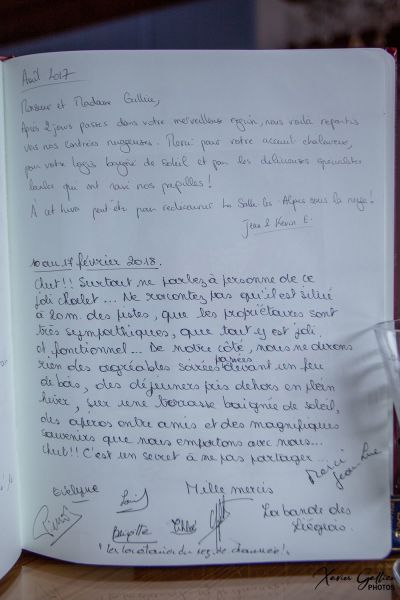 Août 2017
Monsieur et Madame Gallice,
Après 2 jours passés dans votre merveilleuse région, nous voilà repartis
vers nos contrées nuageuses. Merci pour votre accueil chaleureux,
pour votre logis baigné de soleil et pour les délicieuses spécialités
locales qui ont ravi nos papilles !
À cet hiver peut-être pour redécouvrir La Salle-les-Alpes sous la neige !
Jean & Kevin E.
10 au 17 février 2018.
Chut !! Surtout ne parlez à personne de ce
joli chalet... Ne racontez pas qu'il est situé
à 20 m. des pistes, que les propriétaires sont
très sympathiques, que tout y est joli
et fonctionnel... De notre côté, nous ne dirons
rien des agréables soirées passées devant un feu
de bois, des déjeuners pris dehors en plein
hiver, sur une terrasse baignée de soleil,
des apéros entre amis et des magnifiques
souvenirs que nous emportons avec nous...
Chut !! C'est un secret à ne pas partager...
Merci
Jean-Luc
Evelyne
Mille mercis
La bande des
Liégeois.
Brigitte
Chloé
"Les locataires du rez de chaussée !"
Xavier Gallice
PHOTOS